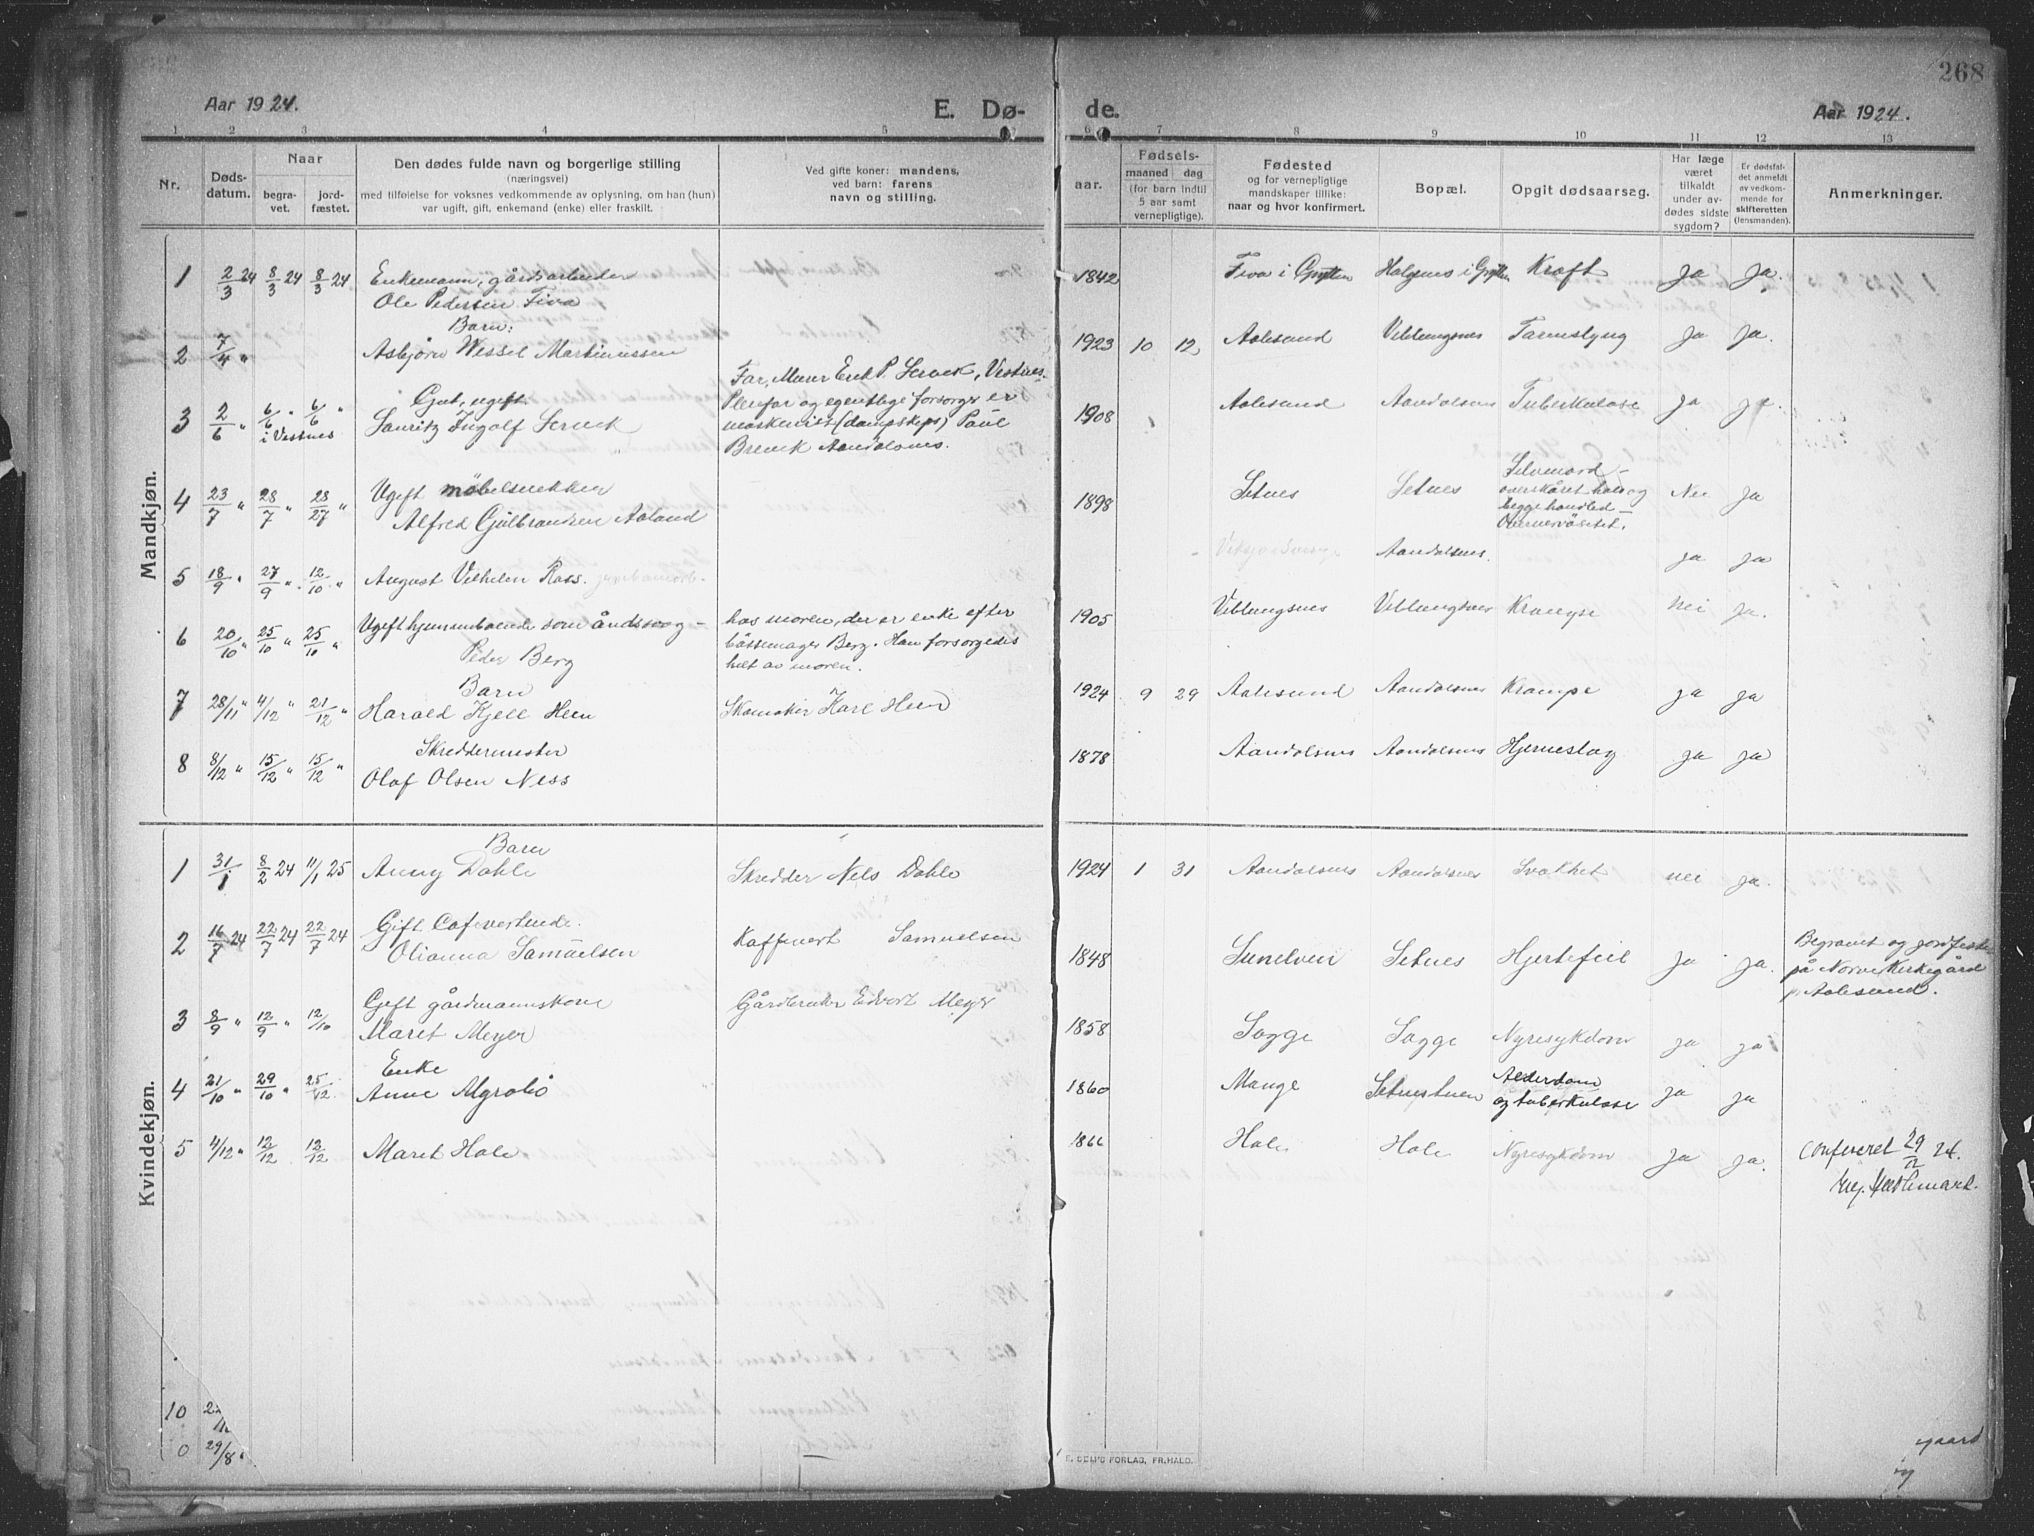 268
Aar 1924.
E. Dø-
de.
Aar 1924.
1 2 3 4 5 6 7 8 9 10 11 12 13
Nr.
Døds-
datum.
Naar
begra-
vet.
jord-
fæstet.
Den dødes fulde navn og borgerlige stilling
(næringsvei)
med tilføielse for voksnes vedkommende av oplysning, om han (hun)
var ugift, gift, enkemand (enke) eller fraskilt.
Ved gifte koner: mandens,
ved barn: farens
navn og stilling.
aar.
Fødsels-
maaned dag
(for barn indtil
5 aar samt
vernepligtige).
Fødested
og for vernepligtige
mandskaper tillike:
naar og hvor konfirmert.
Bopæl.
Opgit dødsaarsag.
Har læge
været
tilkaldt
under av-
dødes sidste
sygdom?
Er dødsfal-
det anmeldt
av vedkom-
mende for
skifteretten
(lensmanden).
Anmerkninger.
Mandkjøn.
1 2/3 24 8/3 24 8/3 24 Enkemann, gårdsarbeider
Ole Pedersen Fiva
1842 Fiva i Grytten Halgenes i Grytten Kræft ja ja.
2 7/4 "
Barn:
Asbjørn Wessel Martinussen
1923 10 12, Aalesund Veblungsnes Tarmslyng ja ja.
3 2/6 " 6/6 " 6/6 "
i Vestnes
Gut, ugift
Lauritz Ingolf Servek
Far, Murer Erik P. Servek, Vestnes.
Pleiefar og egentlige forsørger er
maskinist (dampskips) Paul
Brevik Aandalsnes.
1908 Aalesund Aandalsnes Tuberkulose ja ja.
4 23/7 " 28/7 " 28/27 " Ugift møbelsnekker
Alfred Gulbrandsen Aaland
1898 Setnes Setnes Selvmord –
overskåret hals og
begge handled –
Overnervøsitet.
Nei ja
5 18/9 " 27/9 " 12/10 " August Vilhelm Roos.
Aandalsnes. ja ja
6 20/10 " 25/10 " 25/10 " Ugift hjemmeboende som åndssvag –
Peder Berg
hos moren, der er enke efter
bøssemager Berg. Han forsørgedes
helt av moren.
1905 Veblungsnes Veblungsnes Krampe Nei ja.
7 28/11 " 4/12 " 21/12 "
Barn
Harald Kjell Heen
Skomaker Karl Heen
1924 9 29 Aalesund Aandalsnes Krampe ja ja
8 8/12 " 15/12 " 15/12 "
Skreddermester
Olaf Olsen Ness
1878 Aandalsnes Aandalsnes Hjerneslag ja ja
Kvindekjøn.
1 31/1 8/2 24 11/1 25
Barn
Anny Dahle
Skredder Nils Dahle
1924 1 31 Aandalsnes Aandalsnes Svakhet nei ja.
2 16/7 24 22/7 24 22/7 24 Gift Cafevertinde.
Olianna Samuelsen
Kaffevert Samuelsen
1848 Sunelven Setnes Hjertefeil ja ja.
Begravet og jordfestet
på Nørve Kirkegård
p. Aalesund.
3 8/9 " 12/9 " 12/10 Gift gårdmannskone
Maret Meyer
Gårdbruker Edvart Meyer
1858 Sogge Sogge Nyresykdom ja ja
4 21/10 " 29/10 " 25/12
Enke
Anne Mgrabø
1860 Mange Setnestuen Alderdom
og tuberkulose
ja ja
5 4/12 " 12/12 12/12 Maret Hole
1866 Hole Hole Nyresykdom ja ja.
Confereret 29/12 24.
10
0 29/8
gaard
E. SEM'S FORLAG, FR.HALD.